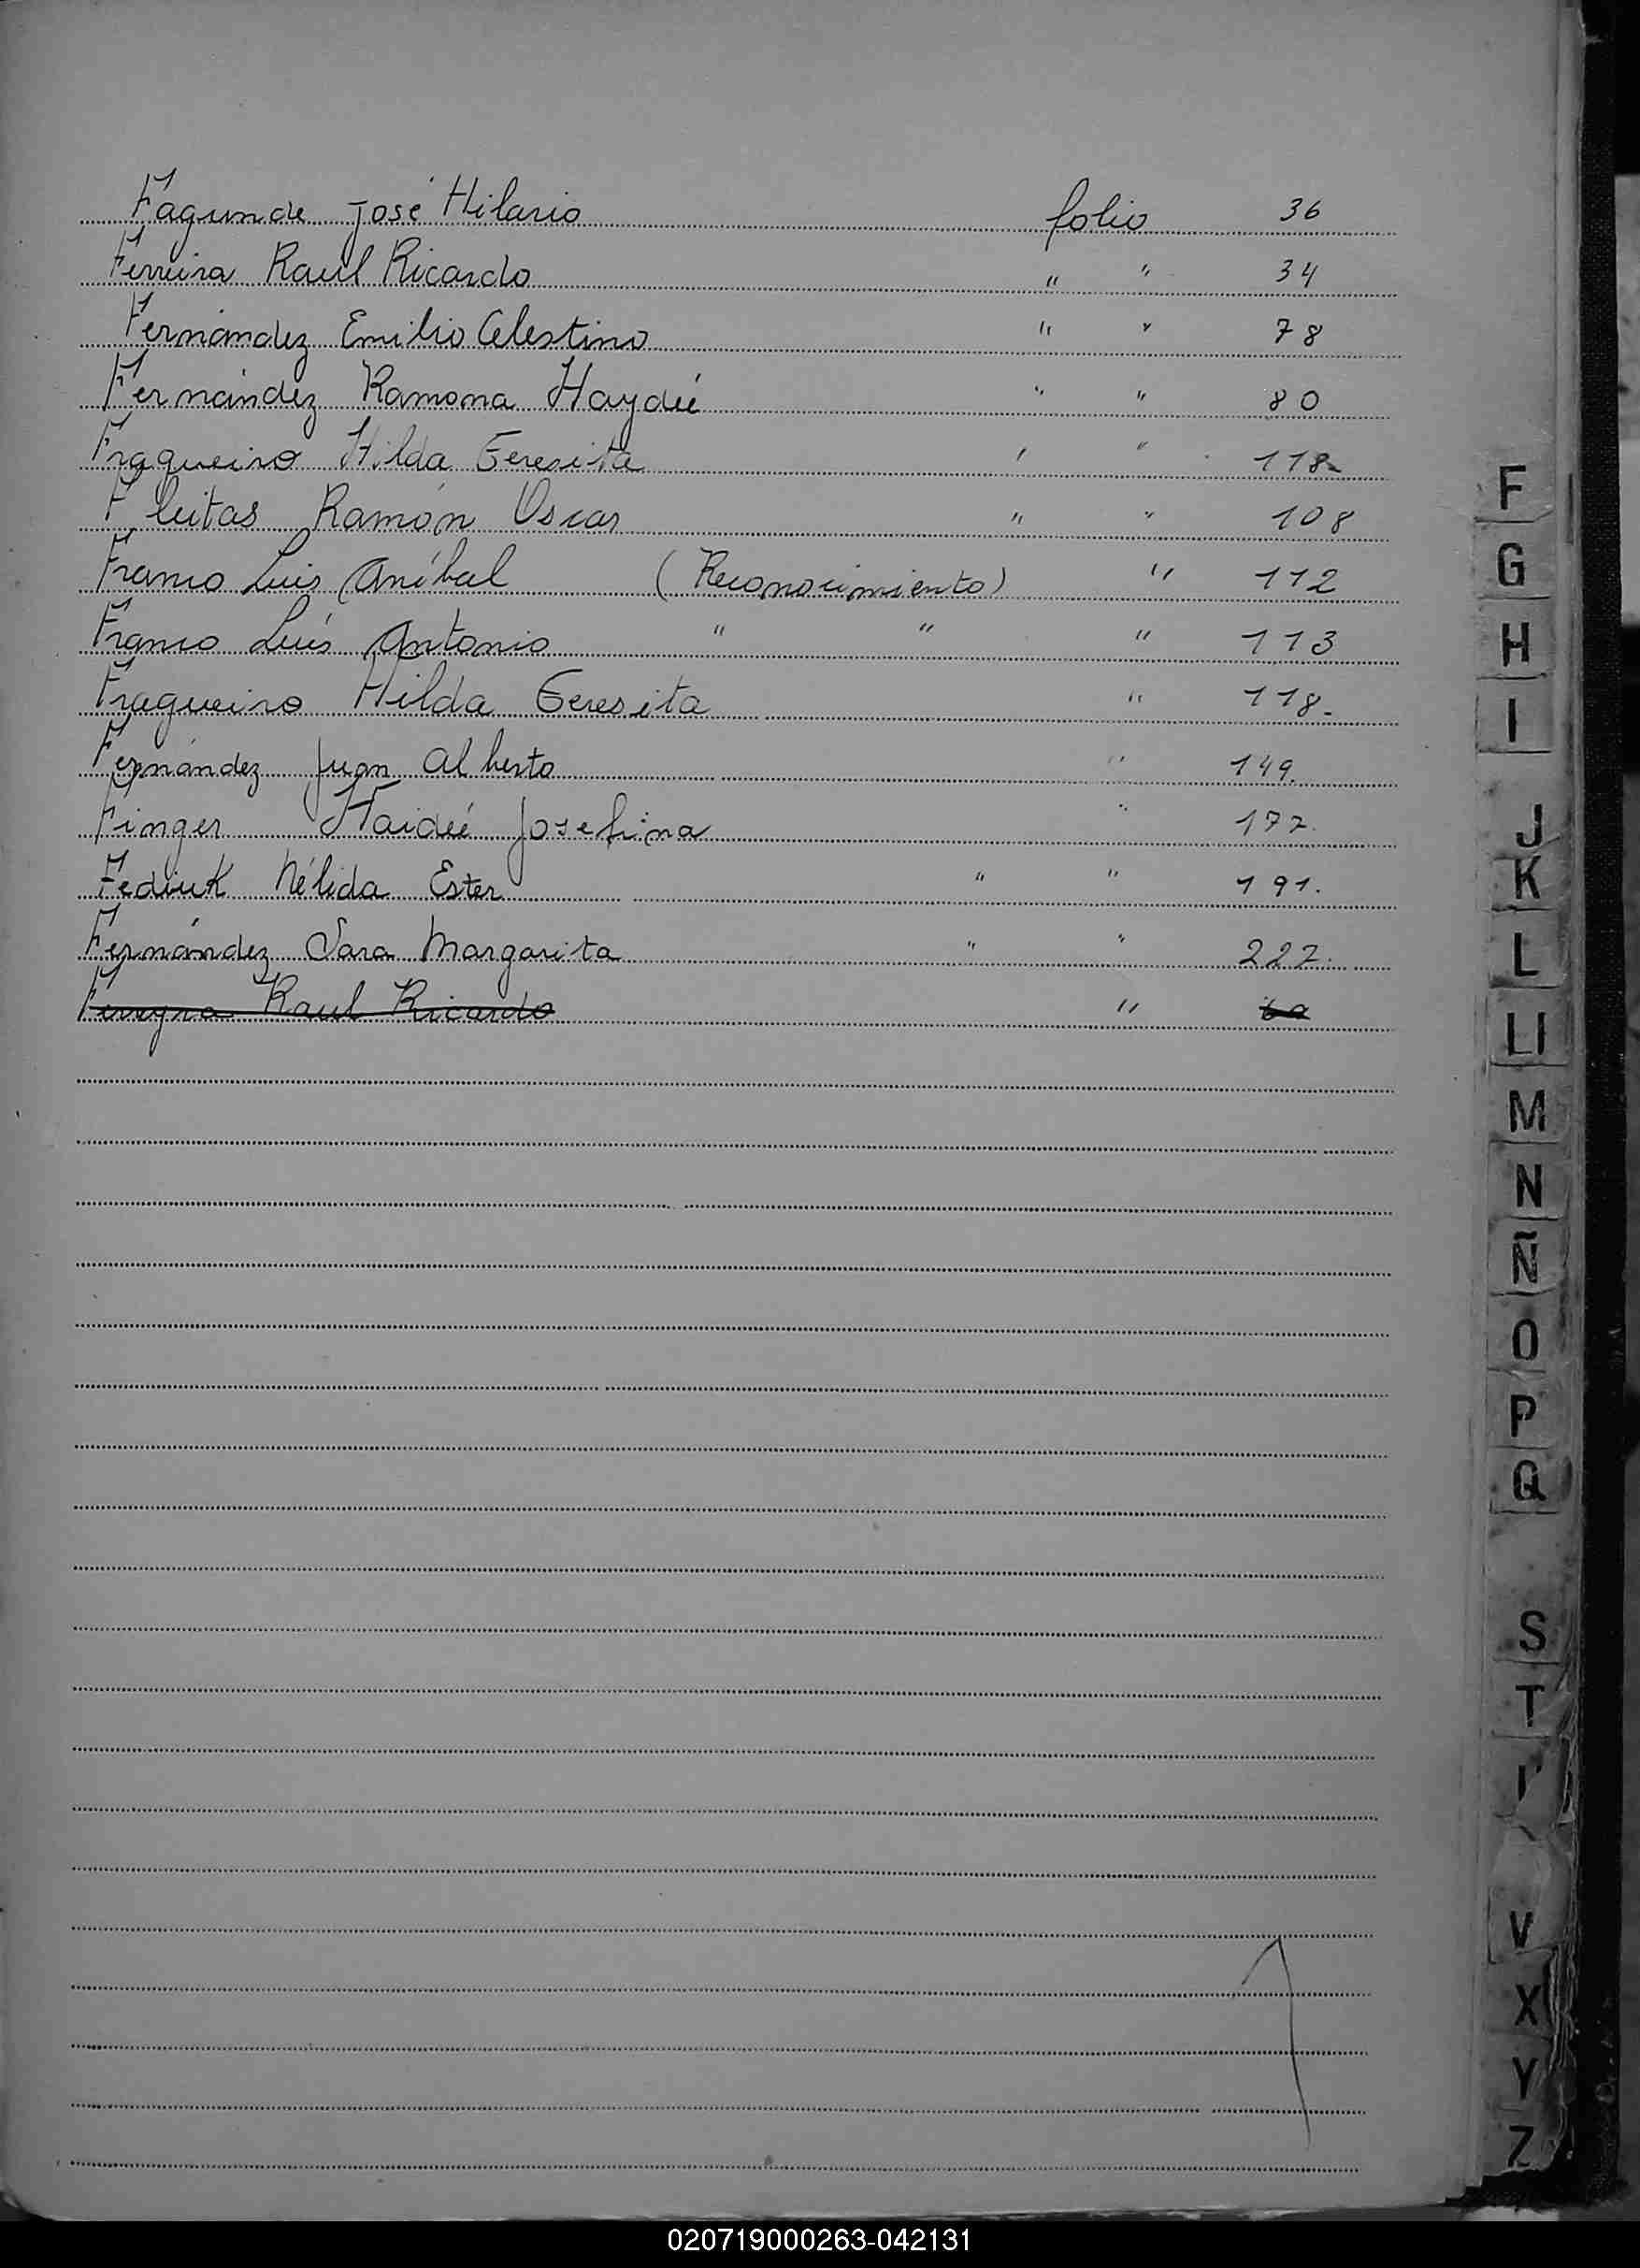 Fagunde José Hilario folio 36
Ferreira Raul Ricardo " " 34
Fernández Emilio Celestino " " 78
Fernández Ramona Haydeé " " 80
Fraqueiro Hilda Teresita " " 118-
Fleitas Ramón Oscar " " 108
Franco Luis Aníbal (Reconocimiento) " 112
Franco Luis Antonio " " " 113
Fraqueiro Hilda Teresita " 118-
Fernández Juan Alberto " 149.
Finger Haideé Josefina " 177.
Fediuk Nélida Ester " " 191.
Fernández Sara Margarita " " 227.
Ferreyra Raul Ricardo "
F
G
H
I
J
K
L
Ll
M
N
Ñ
O
P
Q
S
T
V
X
Y
Z
020719000263-042131